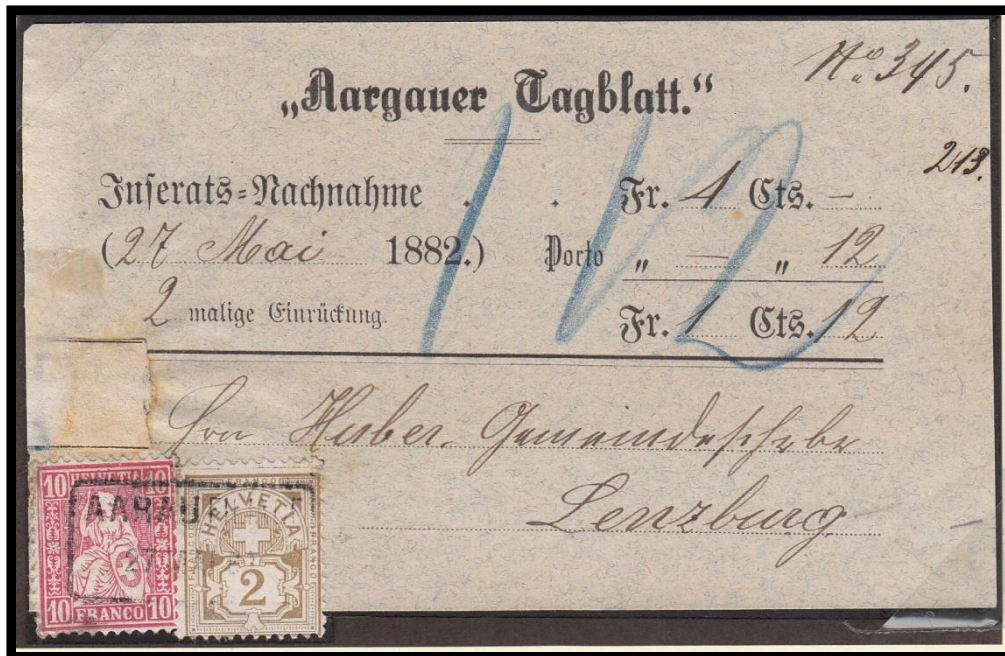 No 345.
„Aargauer Tagblatt.“
213.
Inserats-Nachnahme . . Fr. 1 Cts. –
(27 Mai 1882.) Porto " – " 12
2 malige Einrückung. Fr. 1 Cts. 12
112
Hrn Huber. Gemeindeschrbr
Lenzburg
10 HELVETIA 10
10 FRANCO 10
HELVETIA
FRANCO
FRANCO
2
AARAU
27